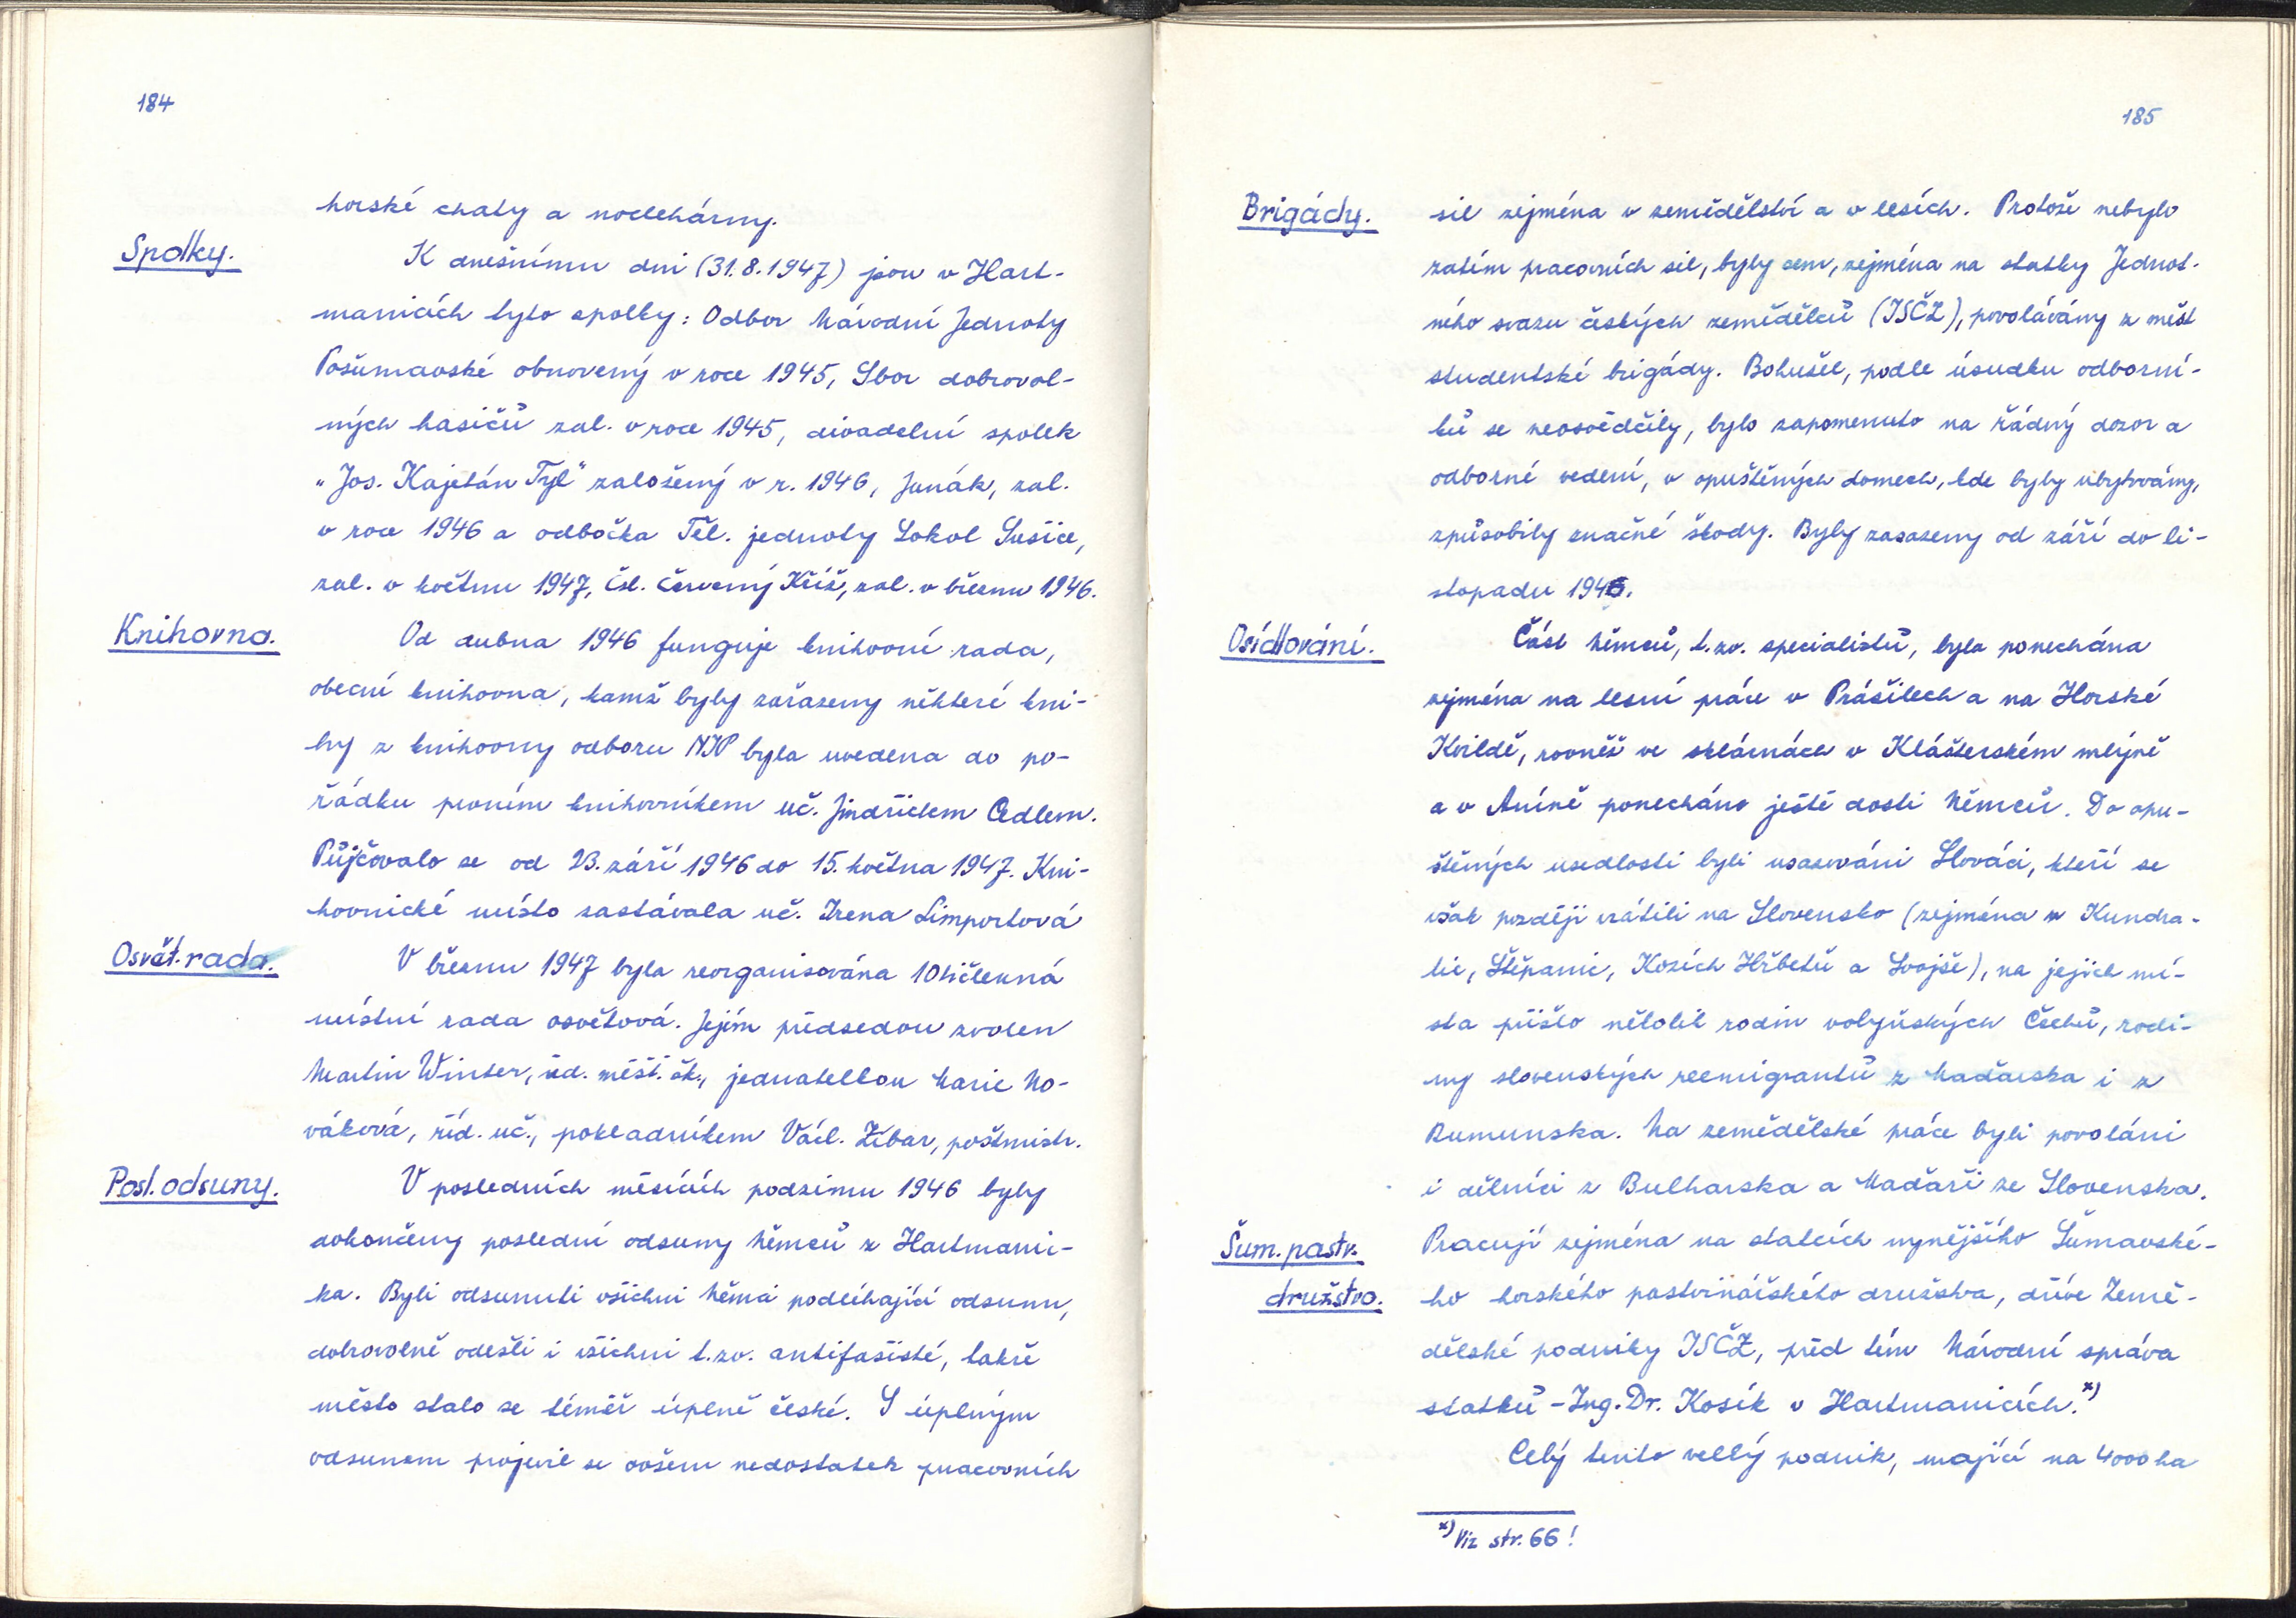 184
horské chaty a noclehárny.
Spolky.
K dnešnímu dni (31.8.1947) jsou v Hart-
manicích tyto spolky: Odbor Národní Jednoty
Pošumavské obnovený v roce 1945, Sbor dobrovol-
ných hasičů zal. v roce 1945, divadelní spolek
„Jos. Kajetán Tyl" založený v r. 1946, Junák, zal.
v roce 1946 a odbočka Těl. jednoty Sokol Sušice,
zal. v květnu 1947, Čsl. Červený Kříž, zal. v březnu 1946.
Knihovna.
Od dubna 1946 funguje knihovní rada,
obecní knihovna, kamž byly zařazeny některé kni-
hy z knihovny odboru NJP byla uvedena do po-
řádku prvním knihovníkem uč. Jindřichem Cedlem.
Půjčovalo se od 23. září 1946 do 15. května 1947. Kni-
hovnické místo zastávala uč. Irena Limportová
Osvět. rada.
V březnu 1947 byla reorganisována 10tičlenná
místní rada osvětová. Jejím předsedou zvolen
Martin Winter, úd. měšť. šk., jednatelkou Marie No-
váková, říd. uč., pokladníkem Václ. Žibar, poštmistr.
Posl. odsuny.
V posledních měsících podzimu 1946 byly
dokončeny poslední odsuny Němců z Hartmanic-
ka. Byli odsunuti všichni Němci podléhající odsunu,
dobrovolně odešli i všichni t.zv. antifašisté, takže
město stalo se téměř úplně české. S úplným
odsunem projevil se ovšem nedostatek pracovních
185
Brigády.
sil zejména v zemědělství a v lesích. Protože nebylo
zatím pracovních sil, byly sem, zejména na statky Jednot-
ného svazu českých zemědělců (JSČZ), povolávány z měst
studentské brigády. Bohužel, podle úsudku odborní-
ků se neosvědčily, bylo zapomenuto na řádný dozor a
odborné vedení, v opuštěných domech, kde byly ubytovány,
způsobily značné škody. Byly zasazeny od září do li-
stopadu 1946.
Osídlování.
Část Němců, t.zv. specialistů, byla ponechána
zejména na lesní práce v Prášilech a na Horské
Kvildě, rovněž ve sklárnách v Klášterském mlýně
a v Aníně ponecháno ještě dosti Němců. Do opu-
štěných usedlostí byli usazováni Slováci, kteří se
však později vrátili na Slovensko (zejména z Kundra-
tic, Štěpanic, Kozích Hřbetů a Svojše), na jejich mí-
sta přišlo několik rodin volyňských Čechů, rodi-
ny slovenských reemigrantů z Maďarska i z
Rumunska. Na zemědělské práce byli povoláni
i dělníci z Bulharska a Maďaři ze Slovenska.
Šum. pastv.
družstvo.
Pracují zejména na statcích nynějšího Šumavské-
ho horského pastvinářského družstva, dříve Země-
dělské podniky JSČZ, před tím Národní správa
statků - Ing. Dr. Kosík v Hartmanicích.x)
Celý tento velký podnik, mající na 4000 ha
x) Viz str. 66!